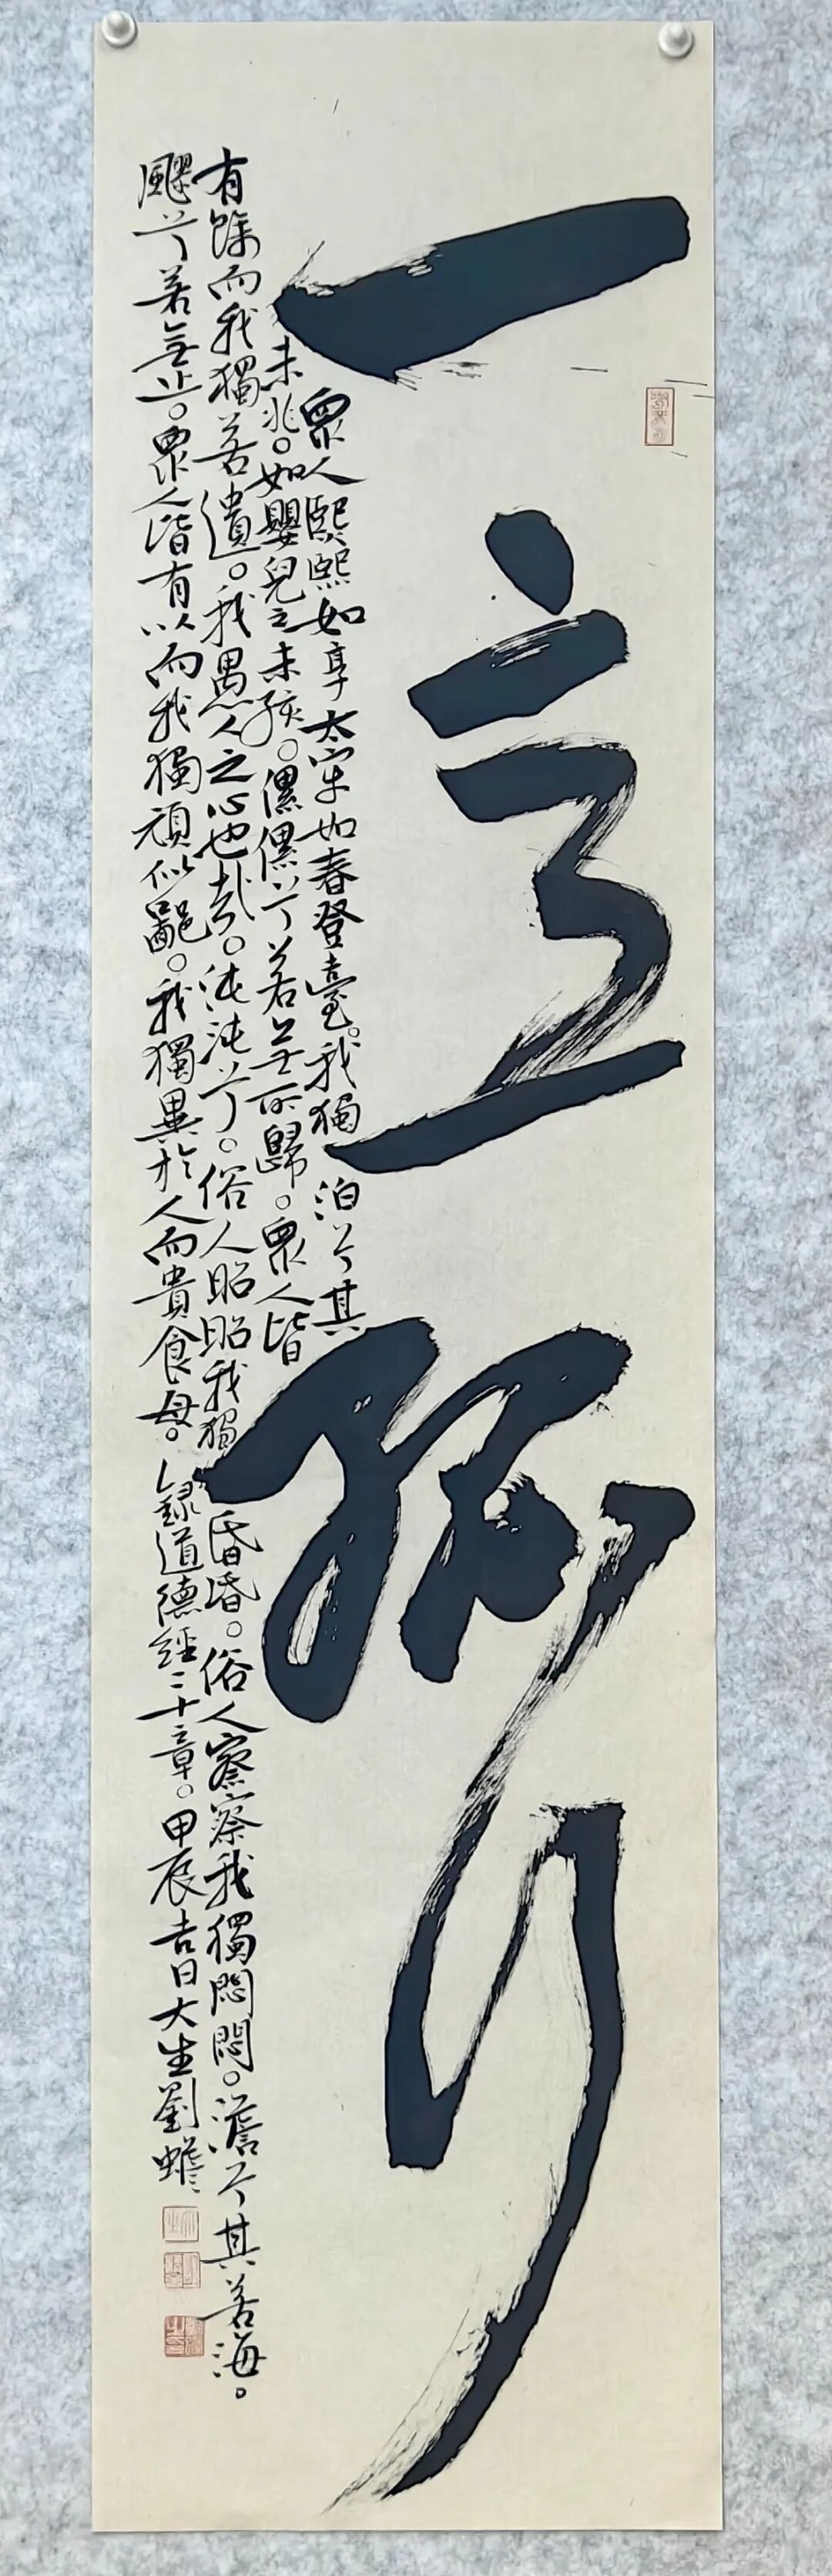 一意孤行
眾人熙熙如享太牢如春登臺。我獨泊兮其
未兆。如嬰兒之未孩。傫傫兮若無所歸。眾人皆
有餘而我獨若遺。我愚人之心也哉。沌沌兮。俗人昭昭我獨昏昏。俗人察察我獨悶悶。澹兮其若海。
飂兮若無止。眾人皆有以而我獨頑似鄙。我獨異於人而貴食母。錄道德經二十章。甲辰吉日大生劉蟾